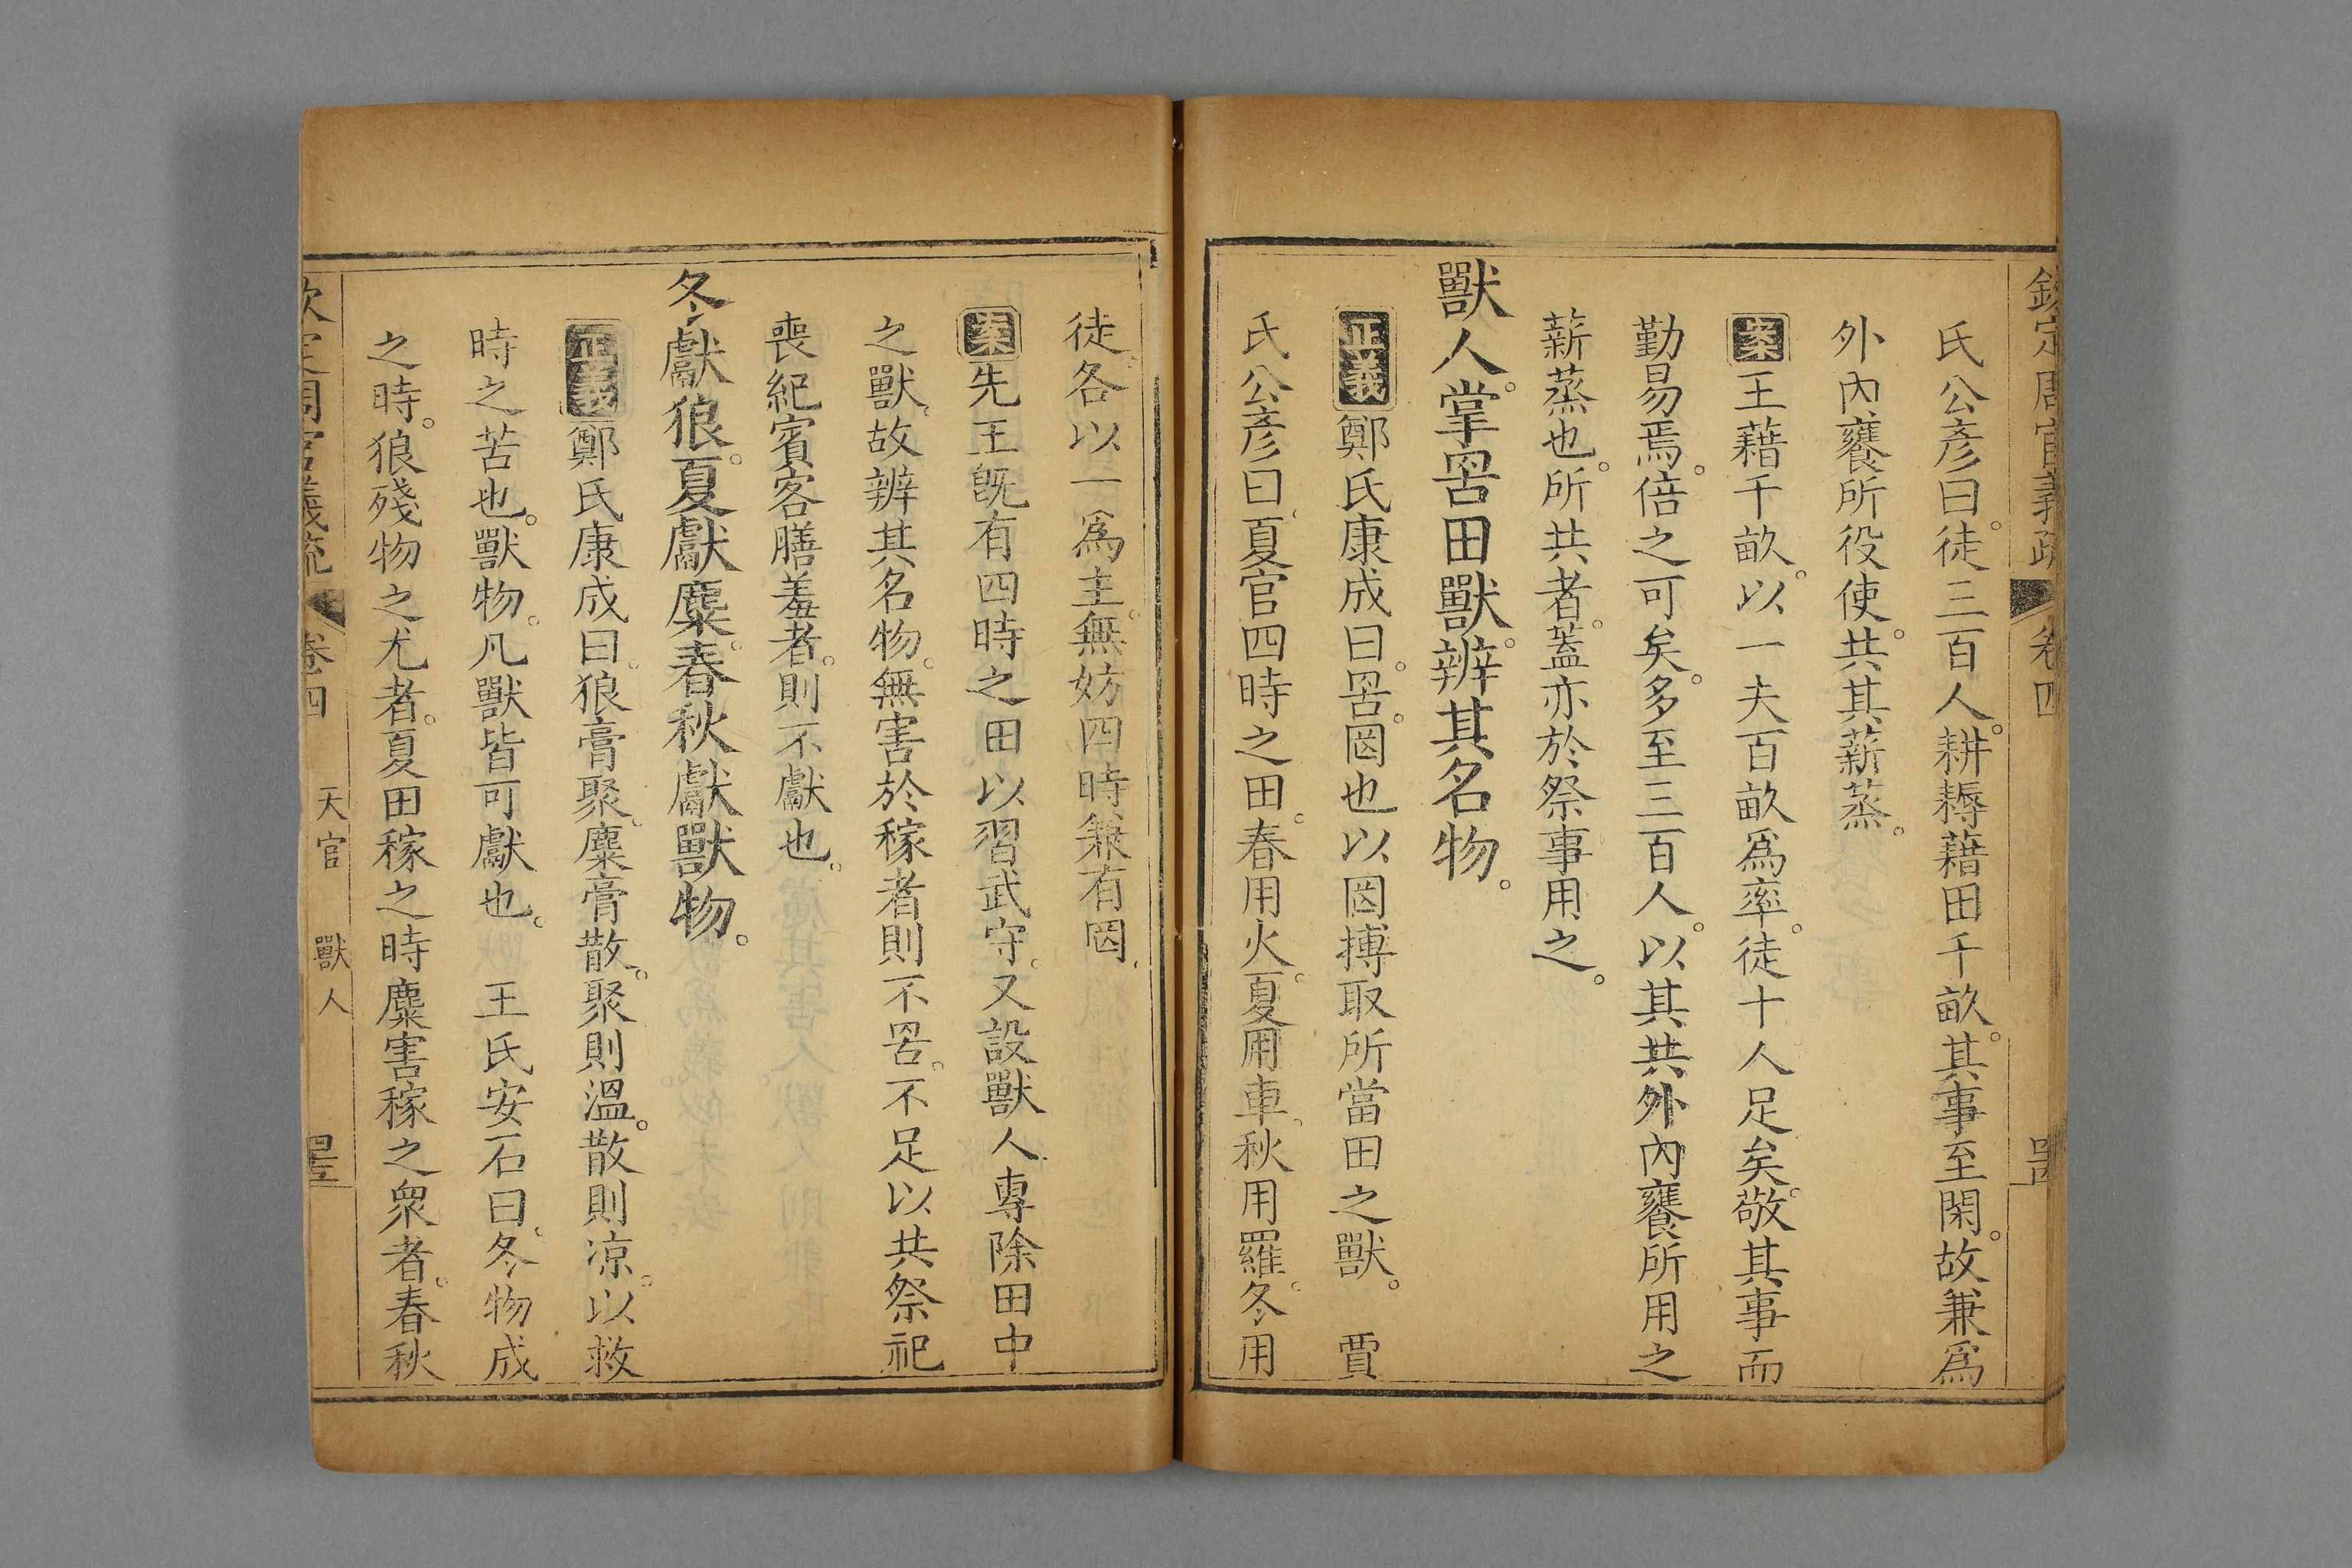 欽定周官義疏 卷四
氏公彥曰徒三百人。耕耨藉田千畝。其事至閑。故兼為
外內饔所役使。共其薪蒸。
案王藉千畝。以一夫百畝爲率。徒十人足矣。敬其事而
勤易焉。倍之可矣。多至三百人。以其共外內饔所用之
薪蒸也。所共者。蓋亦於祭事用之。
獸人。掌罟田獸。辨其名物。
正義鄭氏康成曰。罟。罔也以罔搏取所當田之獸。 賈
氏公彥曰夏官四時之田。春用火。夏用車。秋用羅。冬用
徒各以一爲主。無妨四時兼有罔。
案先王旣有四時之田以習武守。又設獸人專除田中
之獸。故辨其名物。無害於稼者則不罟。不足以共祭祀
喪紀賓客膳羞者。則不獻也。
冬獻狼。夏獻麋。春秋獻獸物。
正義鄭氏康成曰。狼膏聚。麋膏散。聚則溫。散則凉。以救
時之苦也。獸物。凡獸皆可獻也。 王氏安石曰。冬物成
之時。狼殘物之尤者。夏田稼之時麋害稼之衆者。春秋
欽定周官義疏 卷四 天官 獸人